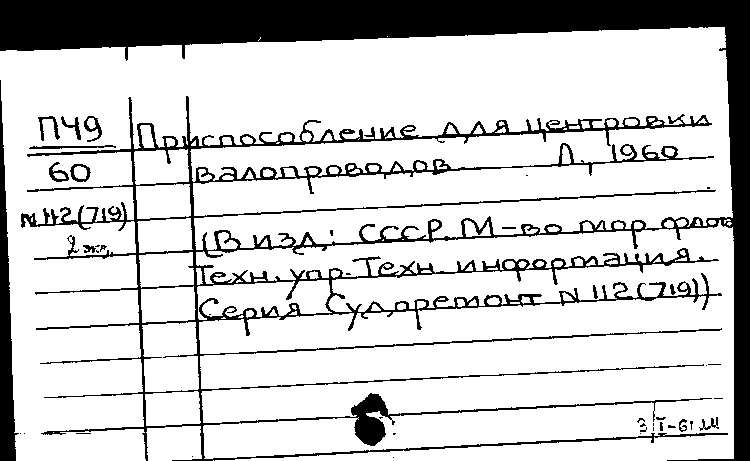 П49
60
N 112(719)
2 экз.
Приспособление для центровки
валопроводов. Л., 1960
(В изд.: СССР. М-во мор. флота
Техн. упр. Техн. информация.
Серия Судоремонт N 112(719))
3/I-61